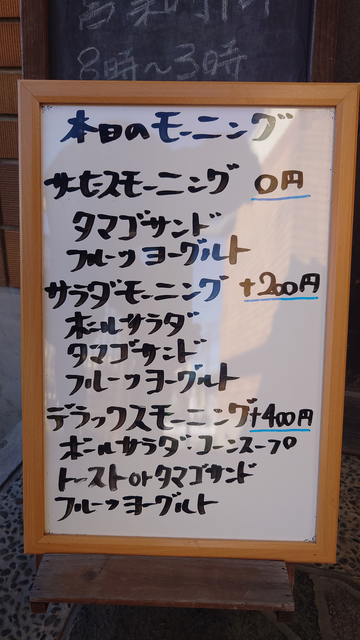 営業時間
8時〜3時
本日のモーニング
サービスモーニング 0円
タマゴサンド
フルーツヨーグルト
サラダモーニング +200円
ボールサラダ
タマゴサンド
フルーツヨーグルト
デラックスモーニング+400円
ボールサラダ・コーンスープ
トーストorタマゴサンド
フルーツヨーグルト